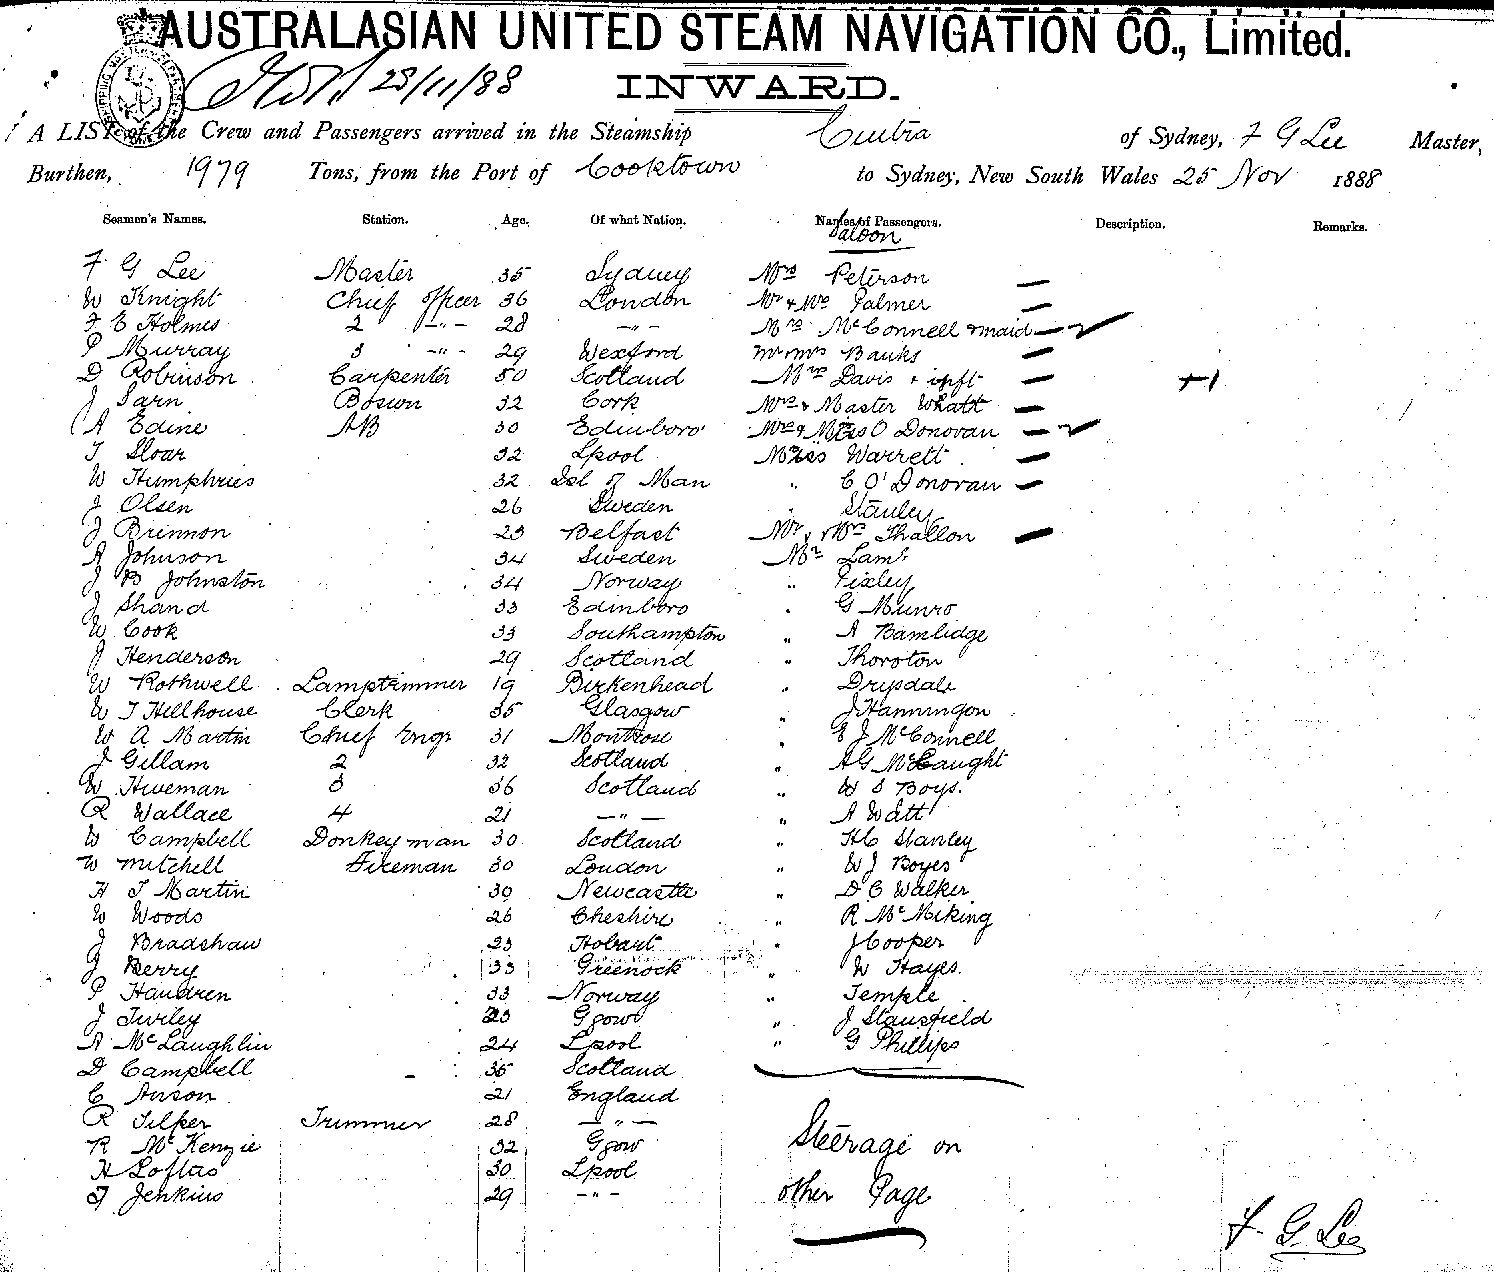 AUSTRALASIAN UNITED STEAM NAVIGATION CO., Limited.
28/11/88 INWARD.
A LIST of the Crew and Passengers arrived in the Steamship Cintra of Sydney, F G Lee Master,
Burthen, 1979 Tons, from the Port of Cooktown to Sydney, New South Wales 25 Nov 1888
Seamen's Names. Station. Age. Of what Nation. Names of Passengers. Description. Remarks.
Saloon
F G Lee Master 35 Sydney Mrs Peterson —
W Knight Chief officer 36 London Mr & Mrs Palmer —
F E Holmes 2 -"- 28 -"- Mrs McConnell & maid —
P Murray 3 -"- 29 Wexford Mr Mrs Banks —
D Robinson Carpenter 50 Scotland Mrs Davis + inft — +1
J Sarn Bosun 32 Cork Mrs & Master Whatt —
A Edine AB 30 Edinboro' Mrs & Miss O Donovan —
T Sloar 32 Lpool Misses Warrett —
W Humphries 32 Isl of Man " C O'Donovan —
J Olsen 26 Sweden " Stanley
J Brinnon 23 Belfast Mr & Mrs Thallon —
A Johnson 34 Sweden Mr Lamb
J B Johnston 34 Norway " Pixley
J Shand 33 Edinboro " G Munro
W Cook 33 Southampton " A Bamlidge
J Henderson 29 Scotland " Thoroton
W Rothwell Lamptrimmer 19 Birkenhead " Drysdale
W T Hillhouse Clerk 35 Glasgow " J Hanningon
W A Martin Chief Engr 31 Montrose " E J McConnell
J Gillam 2 32 Scotland " A G McCaught
W Hweman 3 36 Scotland " W S Boys.
R Wallace 4 21 —"— " A Watt
W Campbell Donkeyman 30 Scotland " H C Stanley
W Mitchell Fireman 30 London " W J Boyes
H T Martin 30 Newcastle " D C Walker
W Woods 26 Cheshire " R McMiking
J Bradshaw 23 Hobart " J Cooper
J Berry 33 Greenock " W Hayes.
P Haudren 33 Norway " Temple
J Turley 23 Ggow " J Stansfield
A McLaughlin 24 Lpool " G Phillips
D Campbell 35 Scotland
C Anson 21 England
R Tilper Trimmer 28 —"—
R McKenzie 32 Ggow Steerage on
H Loftas 30 Lpool
T Jenkins 29 -"- other Page
F G Lee